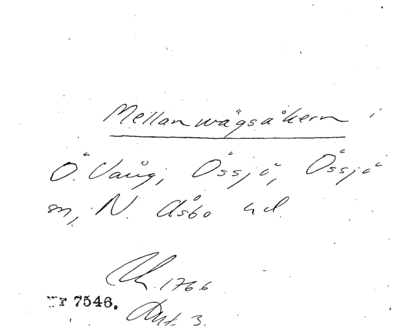 Mellanwägsåkern i
Ö. Vång, Össjö, Össjö
sn, N. Åsbo hd.
1766
Nr 7546.
3.